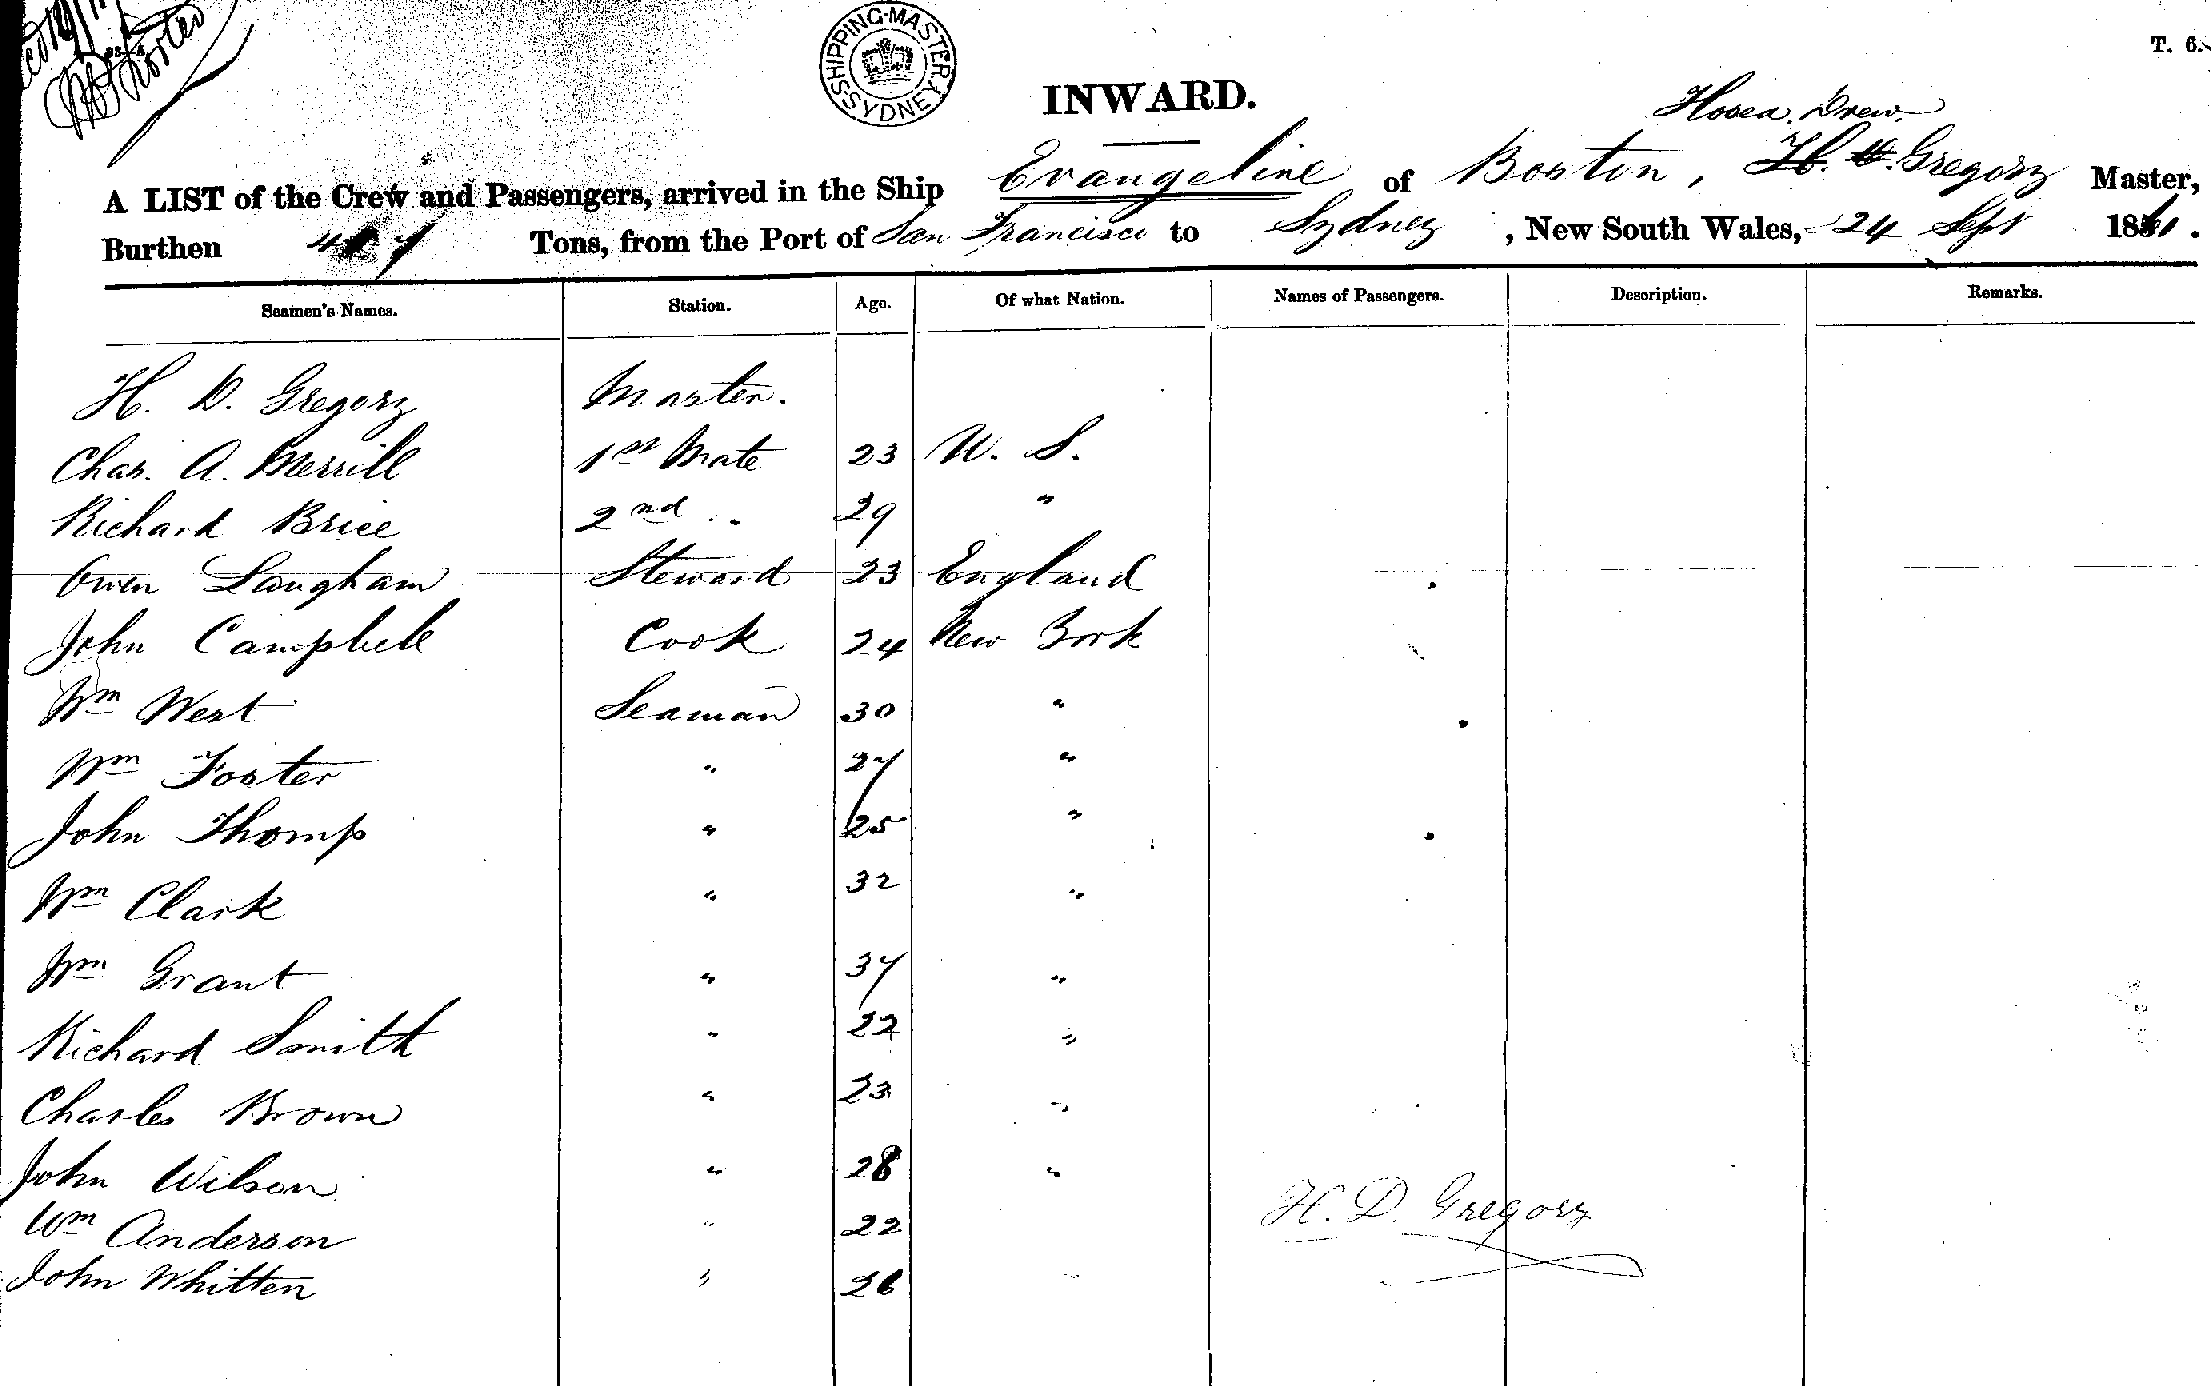 SHIPPING-MASTER, SYDNEY
T. 6.
INWARD.
Hosea Drew
A LIST of the Crew and Passengers, arrived in the Ship Evangeline of Boston, H. D. Gregory Master,
Burthen Tons, from the Port of San Francisco to Sydney, New South Wales, 24 Sept 1861.
Seamen's Names. Station. Age. Of what Nation. Names of Passengers. Description. Remarks.
H. D. Gregory Master.
Chas. A. Merrill 1st Mate 23 U. S.
Richard Brice 2nd " 29 "
Owen Langham Steward 23 England
John Campbell Cook 24 New York
Wm West Seaman 30 "
Wm Foster " 27 "
John Thomp " 25 "
Wm Clark " 32 "
Wm Grant " 37 "
Richard Smith " 22 "
Charles Brown " 23 "
John Wilson " 28 "
Wm Anderson " 22
John Whitten " 26 "
H. D. Gregory